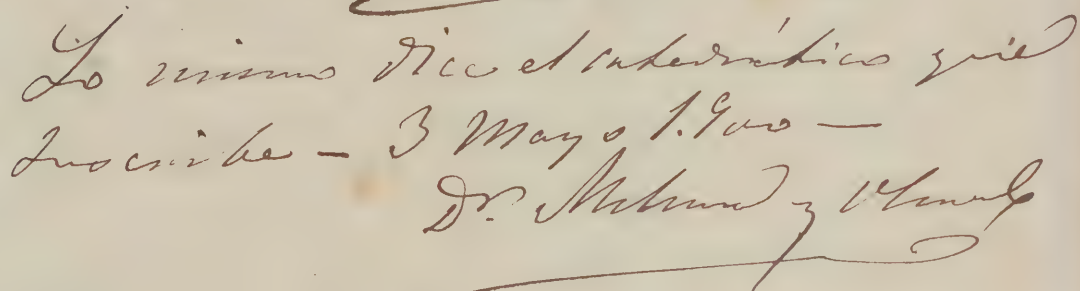 Lo mismo dice el catedrático que
suscribe — 3 Mayo 1.900 —
Dr. y